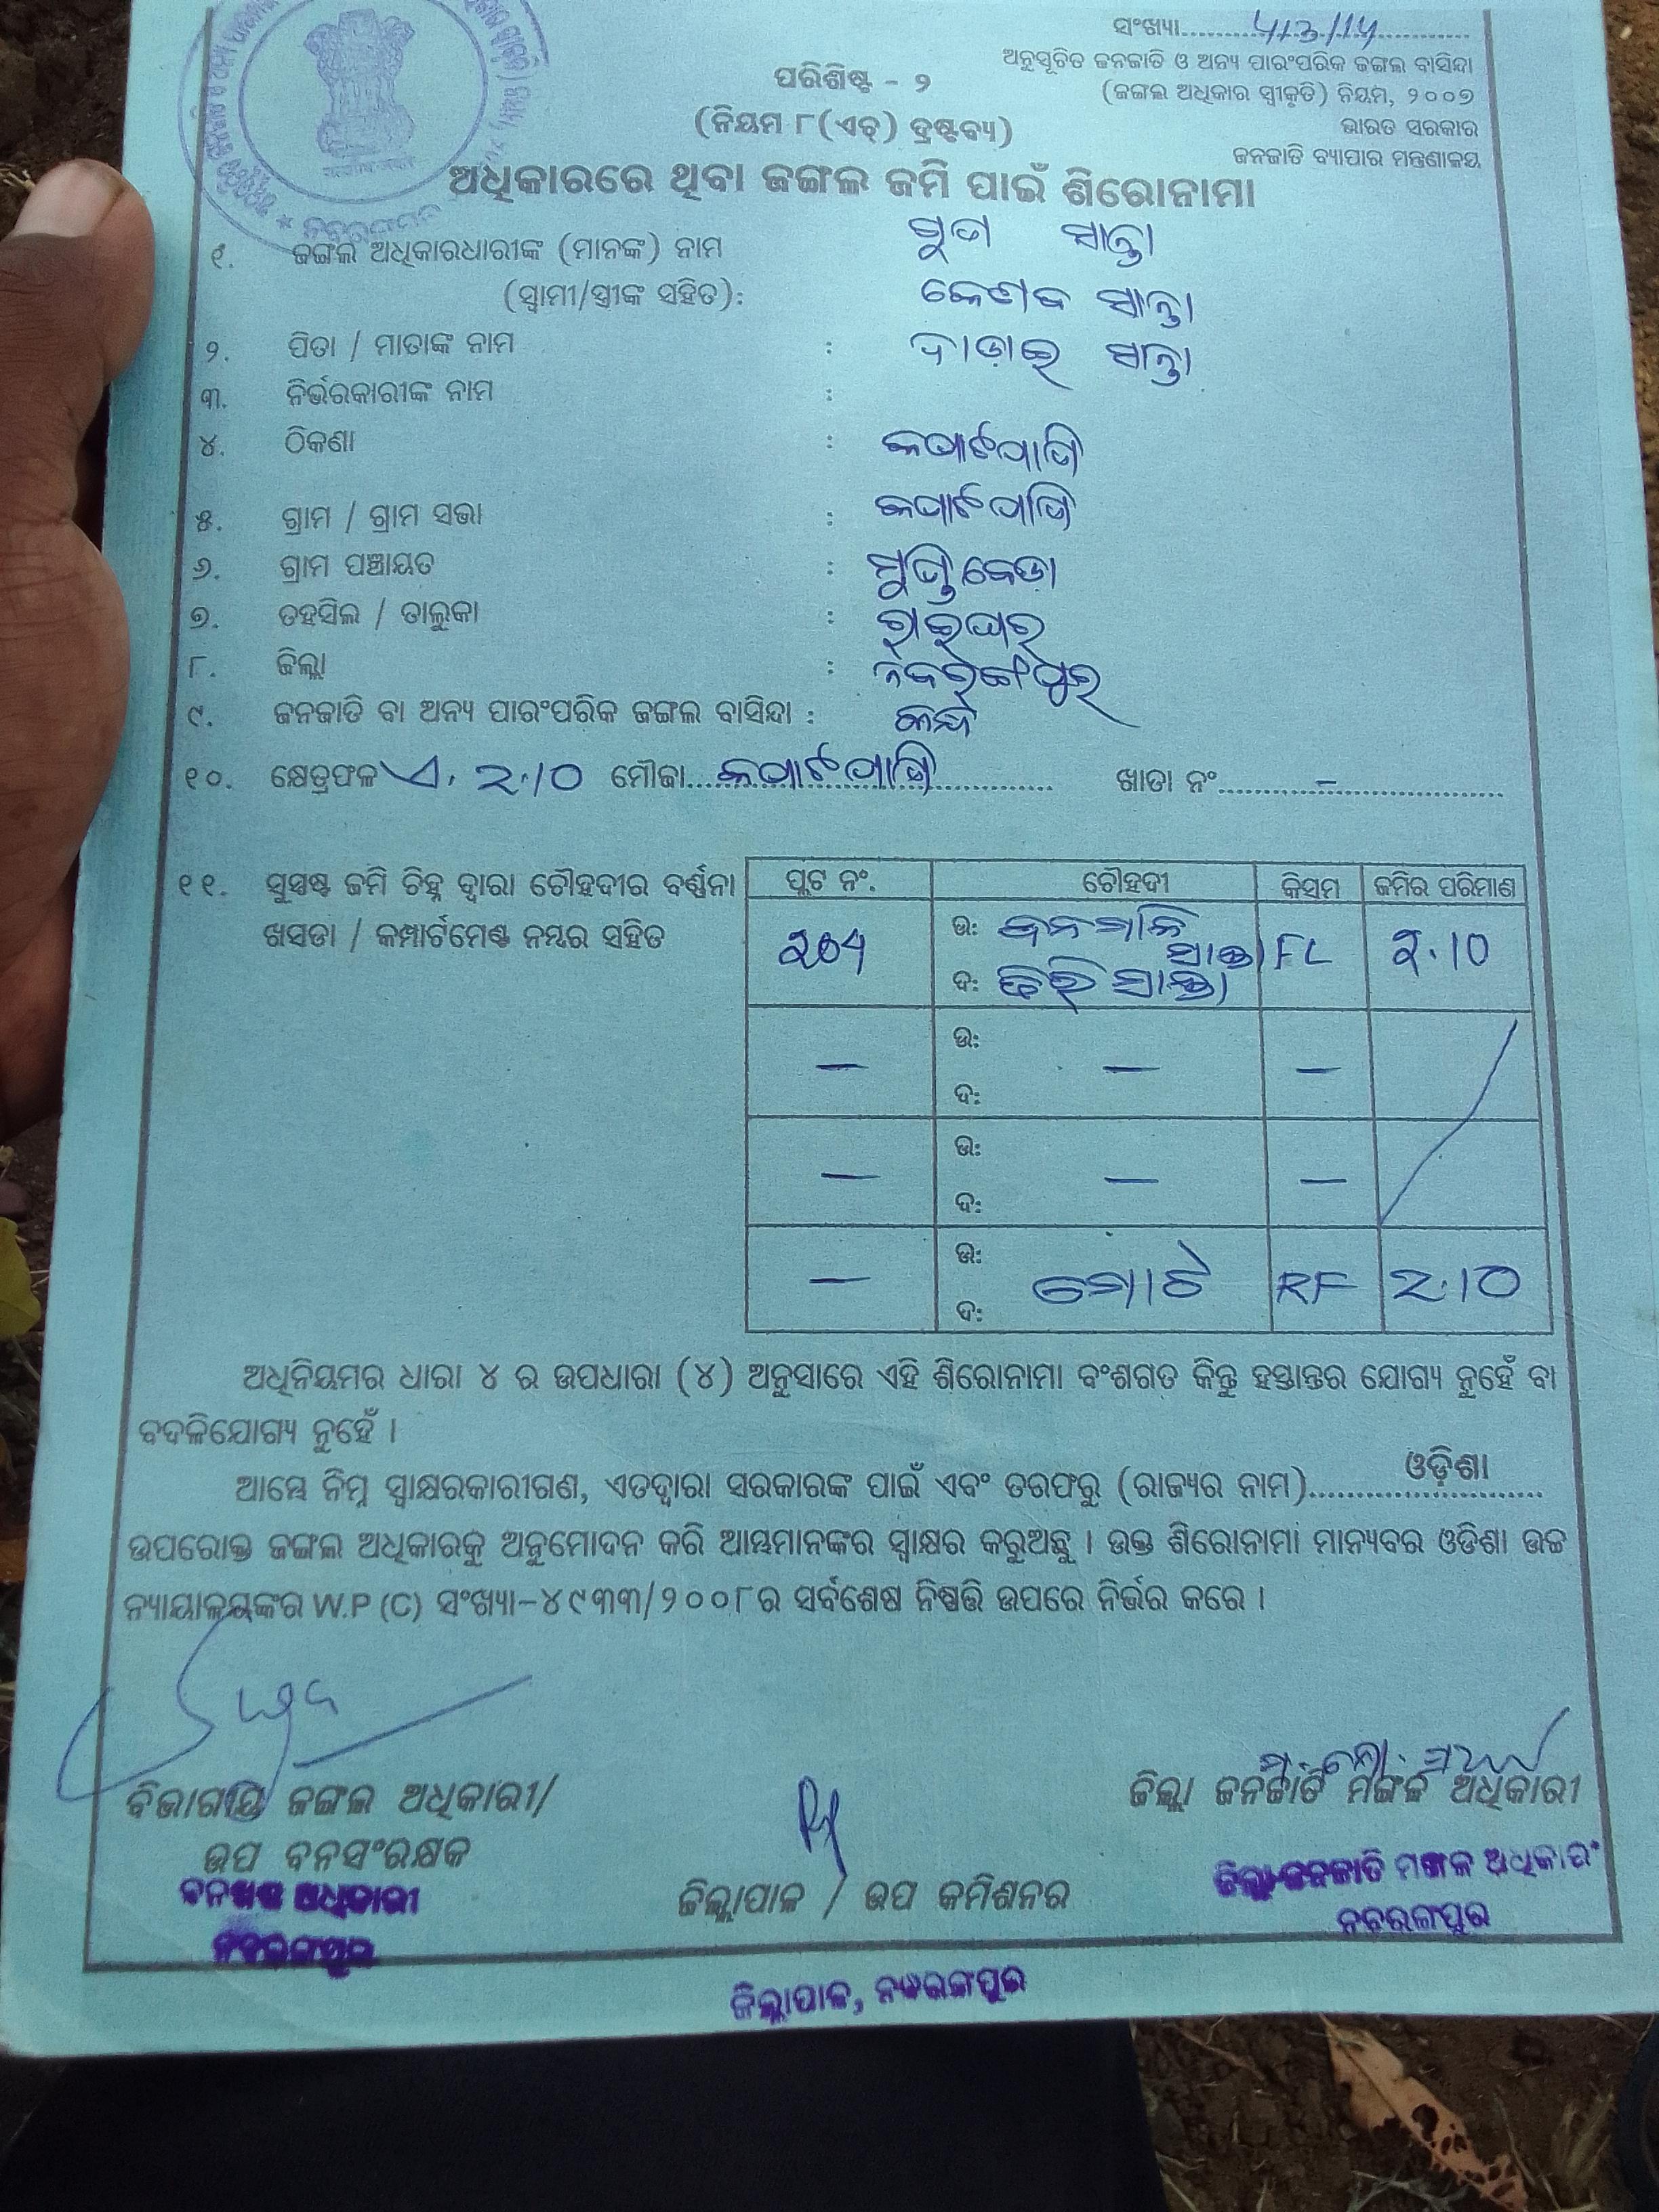 ସଂଖ୍ୟା
ଅନୁସୂଚିତ ଜନଜାତି ଓ ଅନ୍ୟ ପାରଂପରିକ ଜଙ୍ଗଲ ବାସିନ୍ଦା
(ଜଙ୍ଗଲ ଅଧିକାର ସ୍ୱୀକୃତି) ନିୟମ, ୨୦୦୭
ଭାରତ ସରକାର
ଜନଜାତି ବ୍ୟାପାର ମନ୍ତ୍ରଣାଳୟ
ପରିଶିଷ୍ଟ - ୨
(ନିୟମ ୮(ଏଚ୍) ଦ୍ରଷ୍ଟବ୍ୟ)
ଅଧିକାରରେ ଥିବା ଜଙ୍ଗଲ ଜମି ପାଇଁ ଶିରୋନାମା
୧. ଜଙ୍ଗଲ ଅଧିକାରଧାରୀଙ୍କ (ମାନଙ୍କ) ନାମ ସାନ୍ତା
(ସ୍ୱାମୀ/ସ୍ତ୍ରୀଙ୍କ ସହିତ): କେଶବ ସାନ୍ତା
୨. ପିତା / ମାତାଙ୍କ ନାମ : ସାନ୍ତା
୩. ନିର୍ଭରକାରୀଙ୍କ ନାମ :
୪. ଠିକଣା :
୫. ଗ୍ରାମ / ଗ୍ରାମ ସଭା :
୬. ଗ୍ରାମ ପଞ୍ଚାୟତ :
୭. ତହସିଲ / ତାଲୁକା : ରାଇଘର
୮. ଜିଲ୍ଲା : ନବରଙ୍ଗପୁର
୯. ଜନଜାତି ବା ଅନ୍ୟ ପାରଂପରିକ ଜଙ୍ଗଲ ବାସିନ୍ଦା : କନ୍ଧ
୧୦. କ୍ଷେତ୍ରଫଳ ଏ. 2.10 ମୌଜା ଖାତା ନଂ -
୧୧. ସୁସ୍ପଷ୍ଟ ଜମି ଚିହ୍ନ ଦ୍ୱାରା ଚୌହଦୀର ବର୍ଣ୍ଣନା
ଖସଡା / କମ୍ପାର୍ଟମେଣ୍ଟ ନମ୍ବର ସହିତ
ପ୍ଲଟ ନଂ. ଚୌହଦୀ କିସମ ଜମିର ପରିମାଣ
ଉ: FL 2.10
ଦ: ସାନ୍ତା
— ଉ: — —
ଦ:
— ଉ: — —
ଦ:
— ଉ: ମୋଟ RF 2.10
ଦ:
ଅଧିନିୟମର ଧାରା ୪ ର ଉପଧାରା (୪) ଅନୁସାରେ ଏହି ଶିରୋନାମା ବଂଶଗତ କିନ୍ତୁ ହସ୍ତାନ୍ତର ଯୋଗ୍ୟ ନୁହେଁ ବା
ବଦଳିଯୋଗ୍ୟ ନୁହେଁ ।
ଆମ୍ଭେ ନିମ୍ନ ସ୍ୱାକ୍ଷରକାରୀଗଣ, ଏତଦ୍ୱାରା ସରକାରଙ୍କ ପାଇଁ ଏବଂ ତରଫରୁ (ରାଜ୍ୟର ନାମ) ଓଡ଼ିଶା
ଉପରୋକ୍ତ ଜଙ୍ଗଲ ଅଧିକାରକୁ ଅନୁମୋଦନ କରି ଆମ୍ଭମାନଙ୍କର ସ୍ୱାକ୍ଷର କରୁଅଛୁ । ଉକ୍ତ ଶିରୋନାମା ମାନ୍ୟବର ଓଡିଶା ଉଚ୍ଚ
ନ୍ୟାୟାଳୟଙ୍କର W.P (C) ସଂଖ୍ୟା-୪୯୩୩/୨୦୦୮ର ସର୍ବଶେଷ ନିଷ୍ପତ୍ତି ଉପରେ ନିର୍ଭର କରେ ।
ବିଭାଗୀୟ ଜଙ୍ଗଲ ଅଧିକାରୀ/
ଉପ ବନସଂରକ୍ଷକ
ବନଖଣ୍ଡ ଅଧିକାରୀ
ନବରଙ୍ଗପୁର
ଜିଲ୍ଲାପାଳ / ଉପ କମିଶନର
ଜିଲ୍ଲାପାଳ, ନବରଙ୍ଗପୁର
ଜିଲ୍ଲା ଜନଜାତି ମଙ୍ଗଳ ଅଧିକାରୀ
ଜିଲ୍ଲା ଜନଜାତି ମଙ୍ଗଳ ଅଧିକାରୀ
ନବରଙ୍ଗପୁର